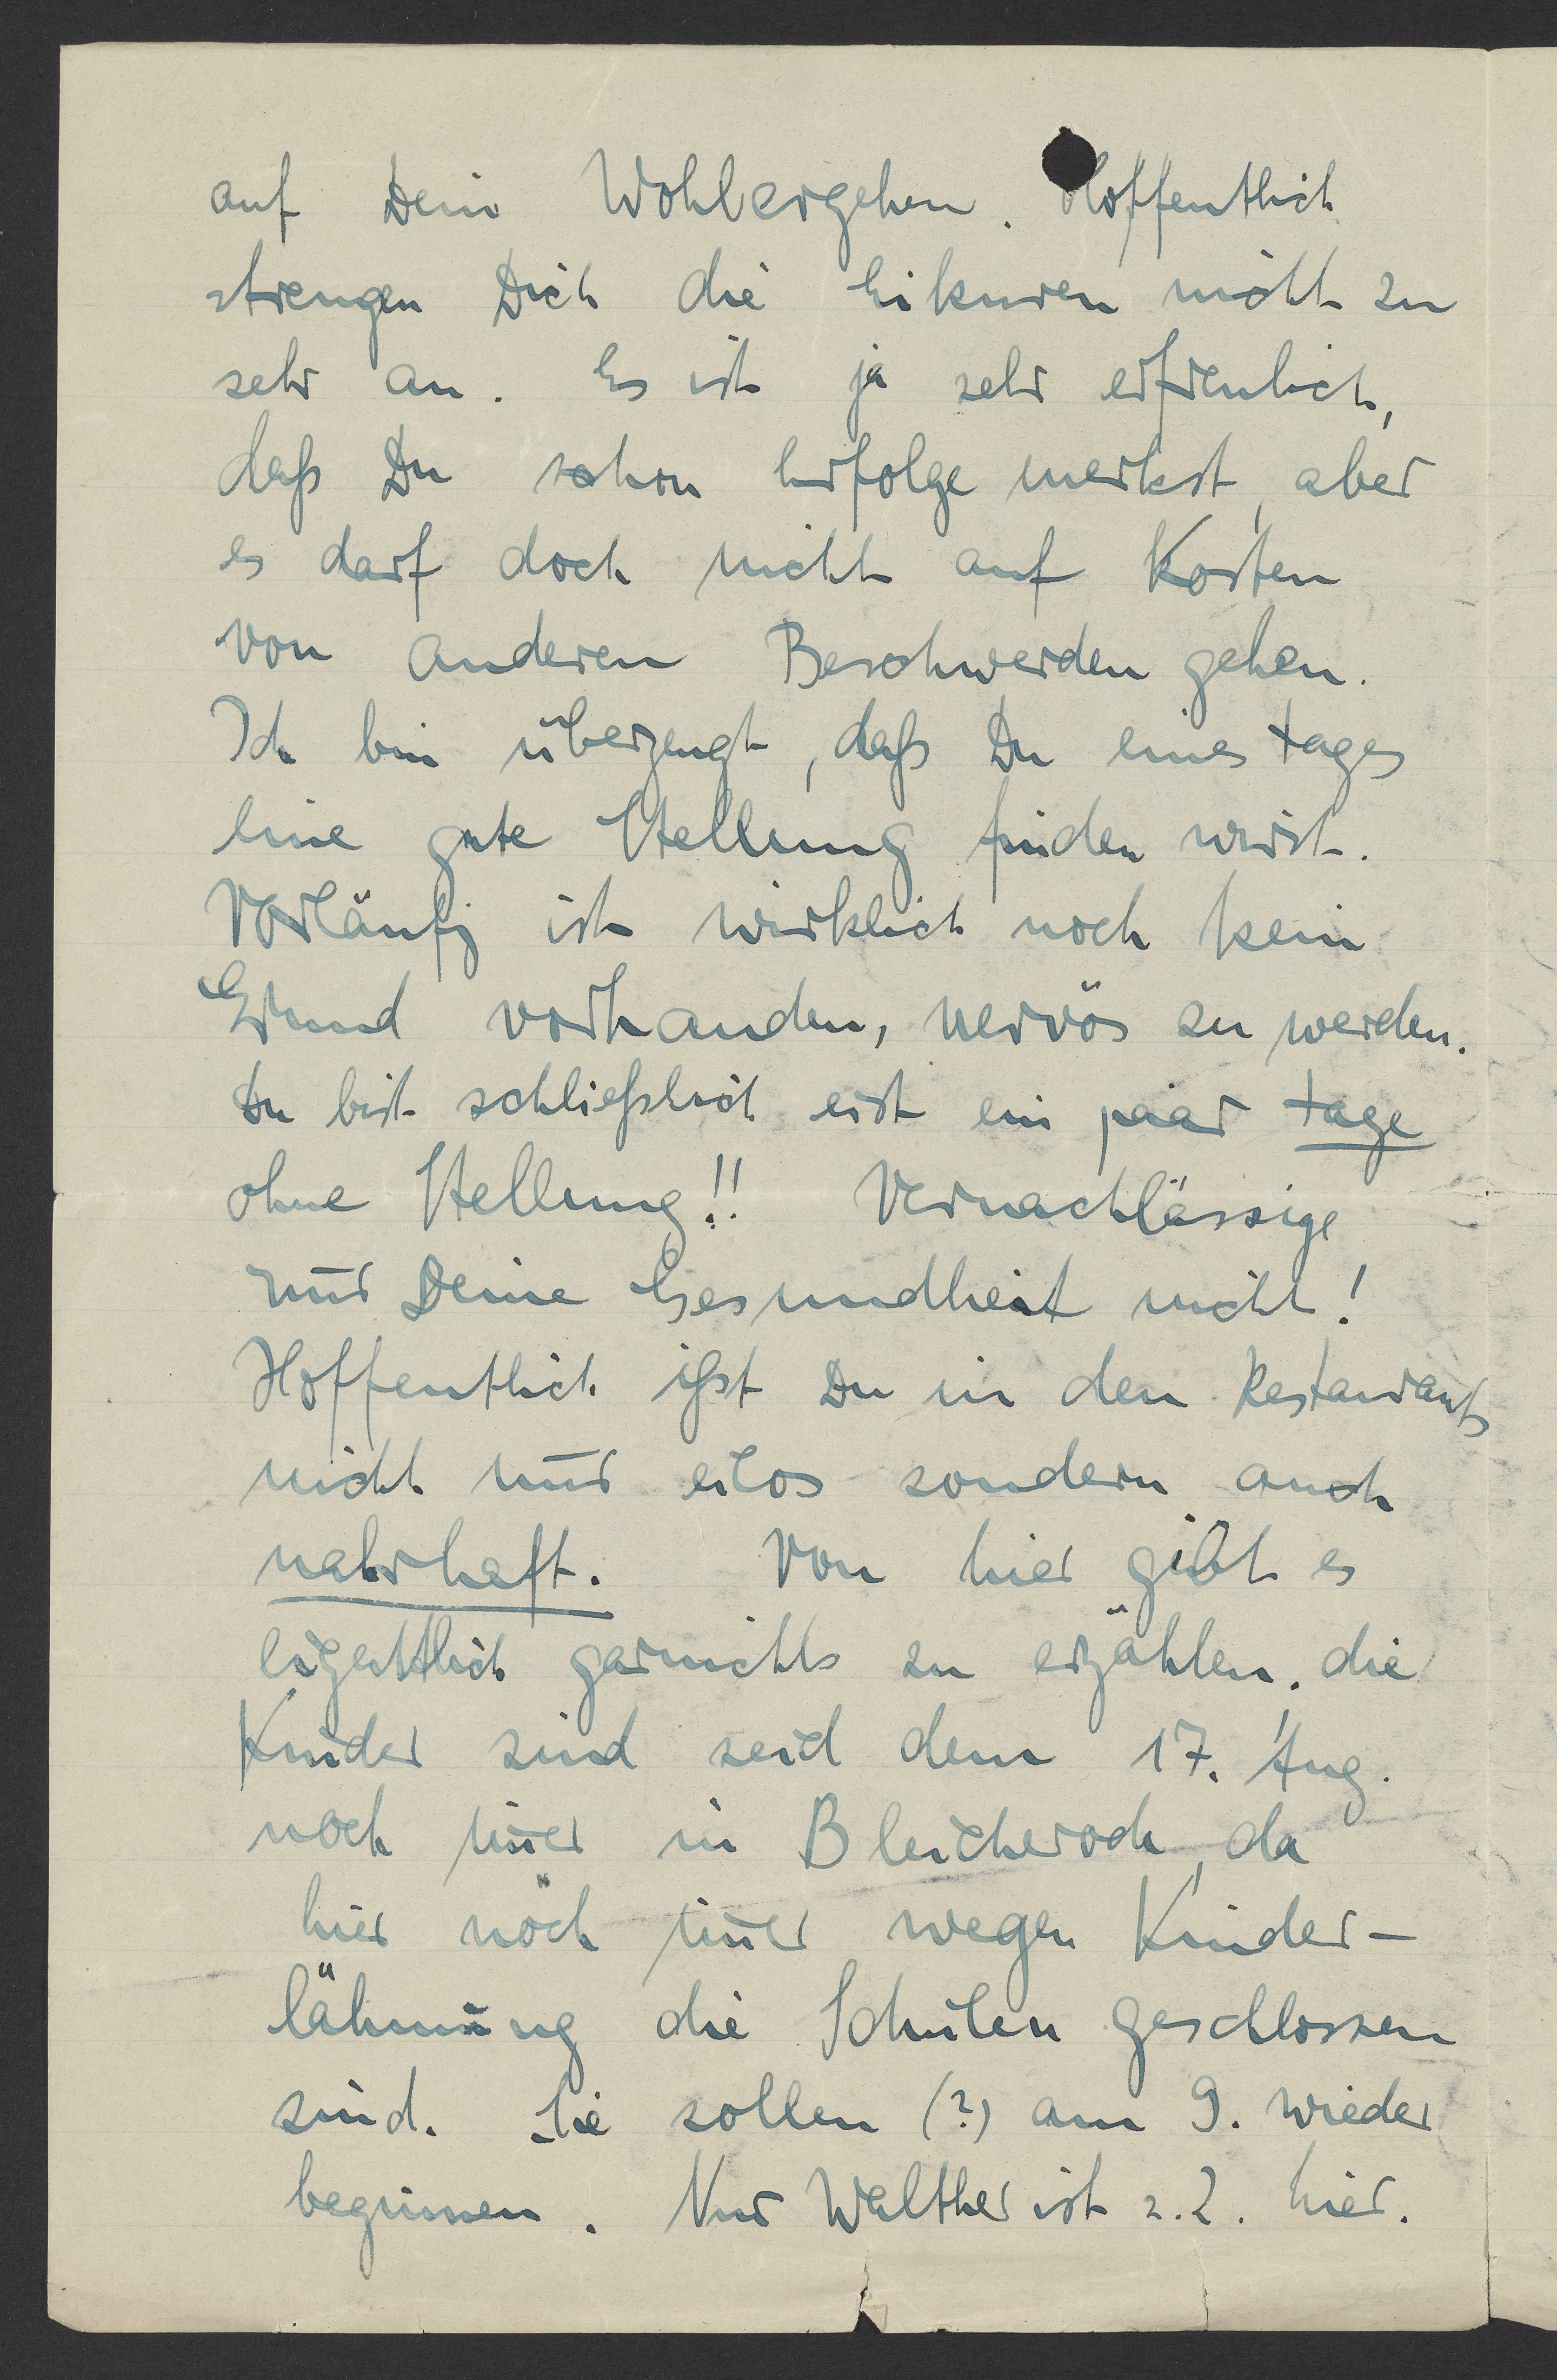 auf Dein Wohlergehen. Hoffentlich
strengen Dich die Eikuren nicht zu
sehr an. Es ist ja sehr erfreulich,
daß Du schon Erfolge merkst, aber
es darf doch nicht auf Kosten
von anderen Beschwerden gehen.
Ich bin überzeugt, daß Du eines Tages
eine gute Stellung finden wirst.
Vorläufig ist wirklich noch kein
Grund vorhanden, nervös zu werden.
Du bist schließlich erst ein paar Tage
ohne Stellung!! Vernachlässige
nur Deine Gesundheit nicht!
Hoffentlich ißt Du in den Restaurants
nicht nur eilos sondern auch
nahrhaft. Von hier gibt es
eigentlich garnichts zu erzählen. die
Kinder sind seid dem 17. Aug.
noch im̅er in Bleicherode, da
hier noch im̅er wegen Kinder-
lähmung die Schulen geschlossen
sind. Sie sollen (?) am 9. wieder
beginnen. Nur Walther ist z. Z. hier.